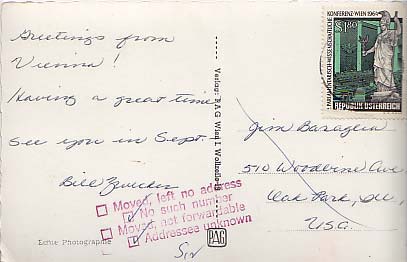 Greetings from
Vienna!
Having a great time
See you in Sept.
Bill
Echte Photographie
Verlag: P.A.G Wien I
PAG
KONFERENZ · WIEN 1964
PARLAMENTARISCH-WISSENSCHAFTLICHE
S 1.80
REPUBLIK ÖSTERREICH
Jim Baraglia
510 Woodbine Ave
Oak Park, Ill,
USA.
Moved, left no address
No such number
Moved, not forwardable
Addressee unknown